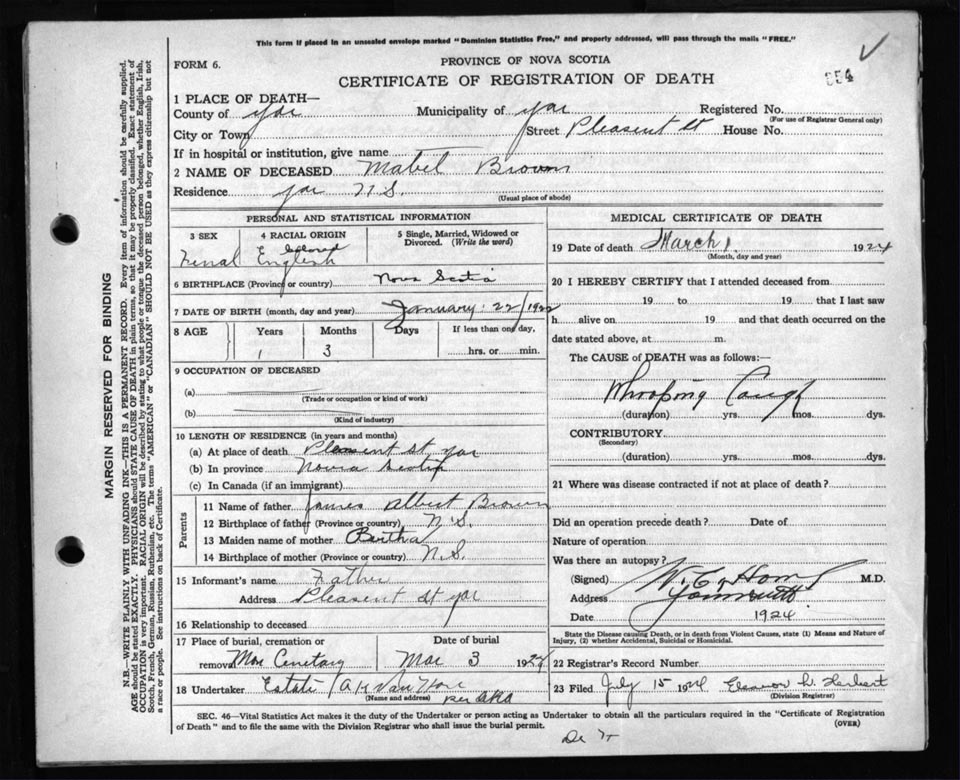 This form if placed in an unsealed envelope marked "Dominion Statistics Free," and properly addressed, will pass through the mails "FREE."
FORM 6.
PROVINCE OF NOVA SCOTIA
CERTIFICATE OF REGISTRATION OF DEATH
1 PLACE OF DEATH—
County of Yar Municipality of Yar Registered No.
(For use of Registrar General only)
City or Town Street Pleasent St House No.
If in hospital or institution, give name
2 NAME OF DECEASED Mabel Brown
Residence Yar N.S.
(Usual place of abode)
PERSONAL AND STATISTICAL INFORMATION
3 SEX 4 RACIAL ORIGIN 5 Single, Married, Widowed or Divorced. (Write the word)
Femal English Colored
6 BIRTHPLACE (Province or country) Nova Scotia
7 DATE OF BIRTH (month, day and year) January 22/1922
8 AGE Years Months Days If less than one day,
1 3 hrs. or min.
9 OCCUPATION OF DECEASED
(a)
(Trade or occupation or kind of work)
(b)
(Kind of industry)
10 LENGTH OF RESIDENCE (in years and months)
(a) At place of death Pleasent St Yar
(b) In province Novia Scotia
(c) In Canada (if an immigrant)
Parents
11 Name of father James Albert Brown
12 Birthplace of father (Province or country) N.S.
13 Maiden name of mother Bertha
14 Birthplace of mother (Province or country) N.S.
15 Informant's name Father
Address Pleasent St Yar
16 Relationship to deceased
17 Place of burial, cremation or removal Date of burial
Cemetary Mar 3 1924
18 Undertaker Estate A K VanHorn
(Name and address)
MEDICAL CERTIFICATE OF DEATH
19 Date of death March 1 1924
(Month, day and year)
20 I HEREBY CERTIFY that I attended deceased from
19 to 19 that I last saw
h alive on 19 and that death occurred on the
date stated above, at m.
The CAUSE of DEATH was as follows:—
Whooping Cough
(duration) yrs. mos. dys.
CONTRIBUTORY
(Secondary)
(duration) yrs. mos. dys.
21 Where was disease contracted if not at place of death?
Did an operation precede death? Date of
Nature of operation
Was there an autopsy?
(Signed) M.D.
Address Yarmouth
Date 1924
State the Disease causing Death, or in death from Violent Causes, state (1) Means and Nature of Injury, (2) whether Accidental, Suicidal or Homicidal.
22 Registrar's Record Number
23 Filed July 15 1924 Eleanor Herbert
(Division Registrar)
SEC. 46—Vital Statistics Act makes it the duty of the Undertaker or person acting as Undertaker to obtain all the particulars required in the "Certificate of Registration
of Death" and to file the same with the Division Registrar who shall issue the burial permit.
(OVER)
MARGIN RESERVED FOR BINDING
N.B.—WRITE PLAINLY WITH UNFADING INK—THIS IS A PERMANENT RECORD. Every item of information should be carefully supplied.
AGE should be stated EXACTLY. PHYSICIANS should STATE CAUSE OF DEATH in plain terms, so that it may be properly classified. Exact statement of
OCCUPATION is very important. RACIAL ORIGIN will be described by stating to what people or tongue the deceased person belonged, whether English, Irish,
Scotch, French, German, Russian, Ruthenian, etc. The terms "AMERICAN" or "CANADIAN" SHOULD NOT BE USED as they express citizenship but not
a race or people. See instructions on back of Certificate.